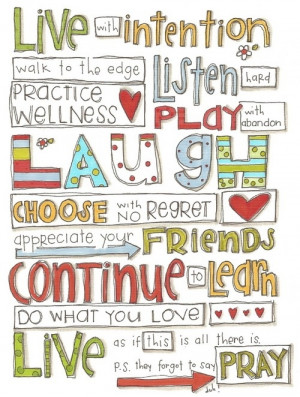 Live with intention
walk to the edge
Listen hard
PRACTICE
WELLNESS
PLAY with
abandon
LAUGH
CHOOSE with
NO REGRET
appreciate your FRIENDS
CONTINUE to Learn
DO WHAT YOU LOVE
Live as if this is all there is.
P.S. they forgot to say PRAY
duh!